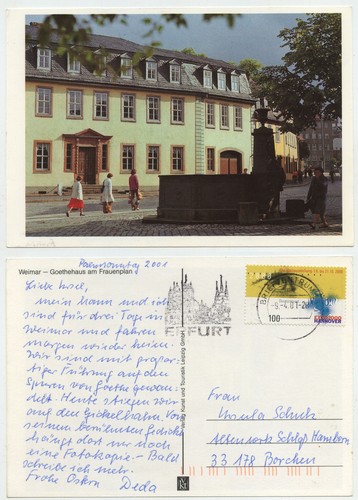 Weimar – Goethehaus am Frauenplan
Palmsonntag 2001
Liebe Ursel,
mein Mann und ich
sind für drei Tage in
Weimar und fahren
morgen wieder heim.
Wir sind mit großar-
tiger Führung auf den
Spuren von Goethe gewan-
delt. Heute stiegen wir
auf den Gickelhahn. Von
seinem berühmten Gedicht
hängt dort nur noch
eine Fotokopie – Bald
schreibe ich mehr.
Frohe Ostern Deda
Verlag Kunst und Touristik Leipzig GmbH
ERFURT
100
EXPO2000
HANNOVER
Frau
Ursula Schulz
Schloß Hamborn
33 178 Borchen